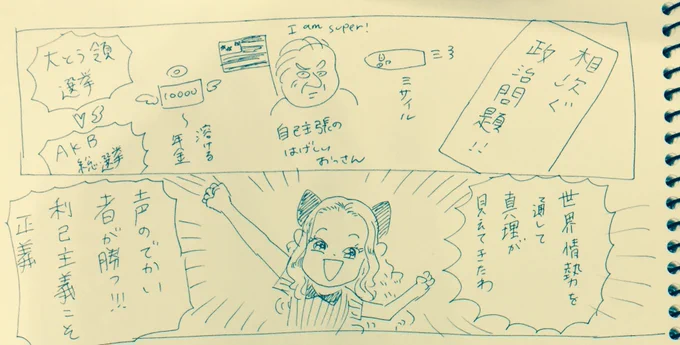 相次ぐ
政治問題!!
ミサイル
I am super!
自己主張の
はげしい
おっさん
10000
溶ける
年金
大とう領
選挙
AKB
総選挙
世界情勢を
通して
真理が
見えてきたわ
声のでかい
者が勝つ!!!
利己主義こそ
正義